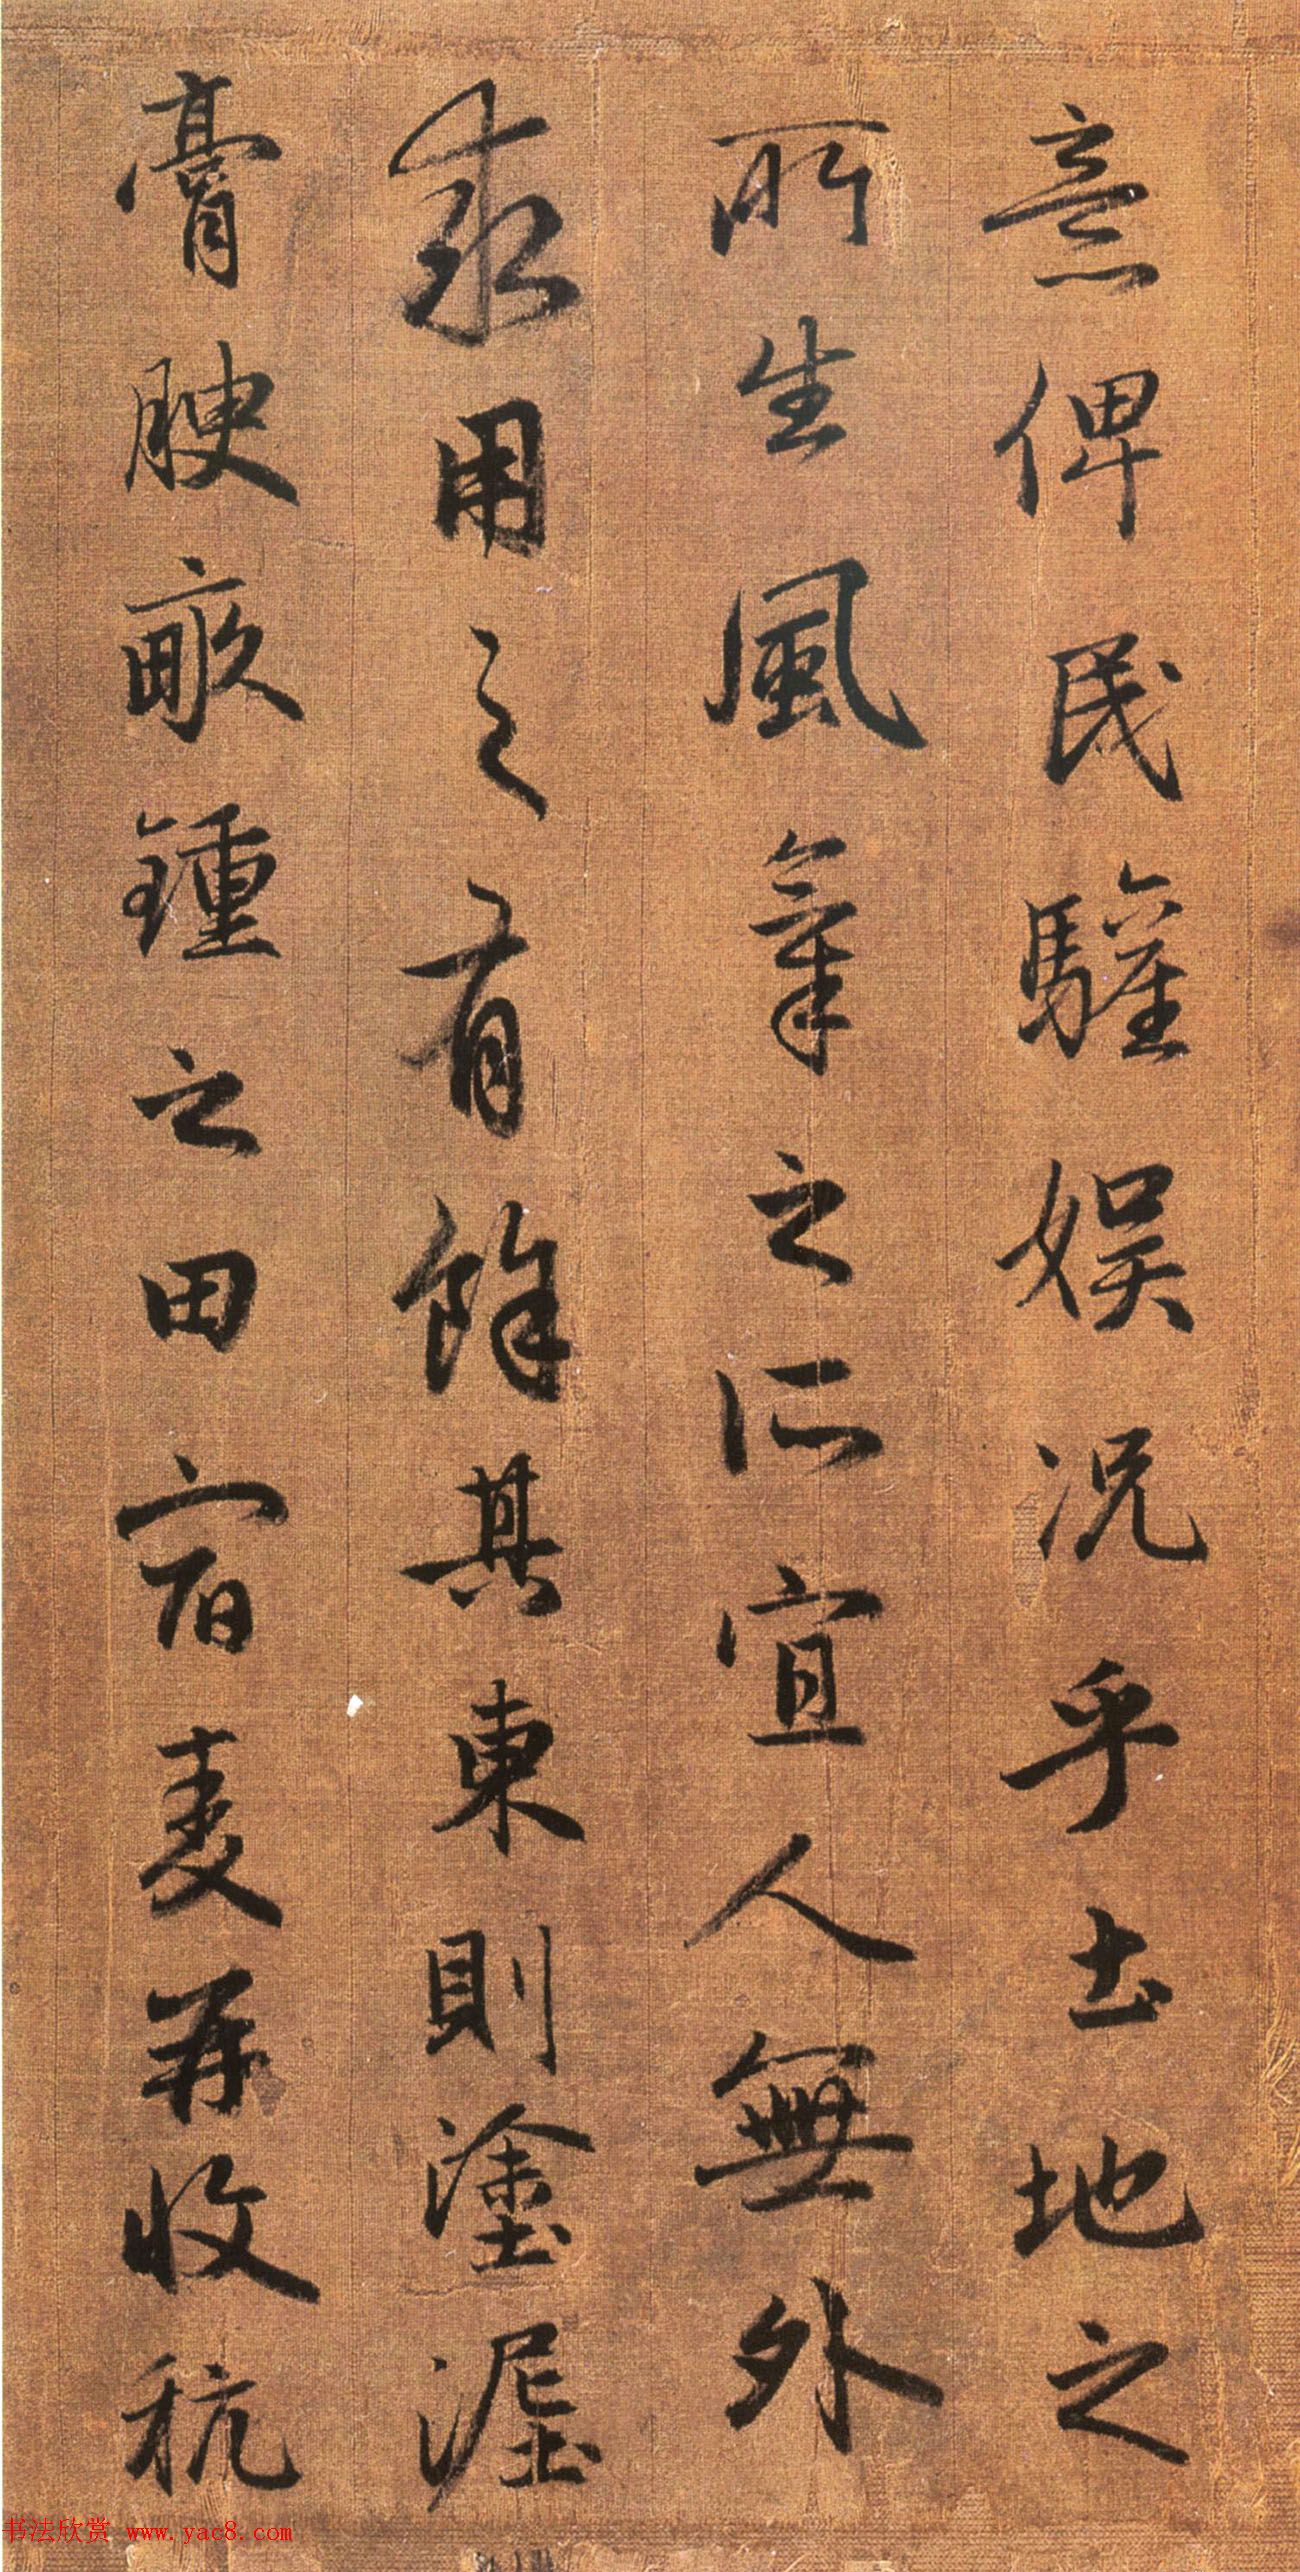 意俾民驩娛況乎土地之
所生風氣之所宜人無外
求用之有餘其東則塗泥
膏腴畝鍾之田宿麥再收秔
书法欣赏 www.yac8.com